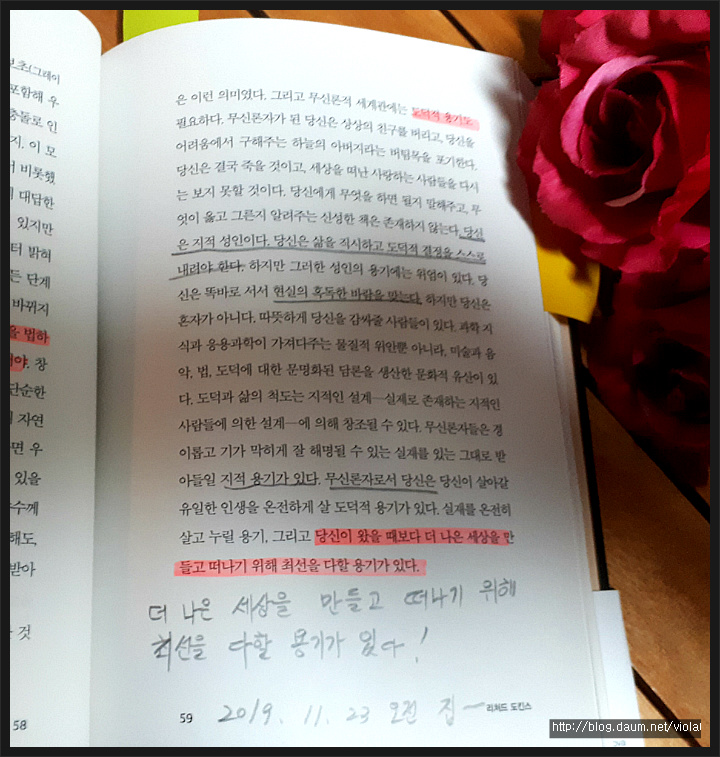 보초(그레이
포함해 우
충돌로 인
지. 이 모
비롯했
대답한
있지만
터 밝혀
든 단계
바뀌지
을 법하
야. 창
단순한
자연
면 우
있을
수께
해도,
받아
것
58
은 이런 의미였다. 그리고 무신론적 세계관에는 도덕적 용기도
필요하다. 무신론자가 된 당신은 상상의 친구를 버리고, 당신을
어려움에서 구해주는 하늘의 아버지라는 버팀목을 포기한다.
당신은 결국 죽을 것이고, 세상을 떠난 사랑하는 사람들을 다시
는 보지 못할 것이다. 당신에게 무엇을 하면 될지 말해주고, 무
엇이 옳고 그른지 알려주는 신성한 책은 존재하지 않는다. 당신
은 지적 성인이다. 당신은 삶을 직시하고 도덕적 결정을 스스로
내려야 한다. 하지만 그러한 성인의 용기에는 위엄이 있다. 당
신은 똑바로 서서 현실의 혹독한 바람을 맞는다. 하지만 당신은
혼자가 아니다. 따뜻하게 당신을 감싸줄 사람들이 있다. 과학 지
식과 응용과학이 가져다주는 물질적 위안뿐 아니라, 미술과 음
악, 법, 도덕에 대한 문명화된 담론을 생산한 문화적 유산이 있
다. 도덕과 삶의 척도는 지적인 설계—실제로 존재하는 지적인
사람들에 의한 설계—에 의해 창조될 수 있다. 무신론자들은 경
이롭고 기가 막히게 잘 해명될 수 있는 실재를 있는 그대로 받
아들일 지적 용기가 있다. 무신론자로서 당신은 당신이 살아갈
유일한 인생을 온전하게 살 도덕적 용기가 있다. 실재를 온전히
살고 누릴 용기, 그리고 당신이 왔을 때보다 더 나은 세상을 만
들고 떠나기 위해 최선을 다할 용기가 있다.
더 나은 세상을 만들고 떠나기 위해
최선을 다할 용기가 있다!
59 2019. 11. 23 오전 집~ 리처드 도킨스
http://blog.daum.net/violai